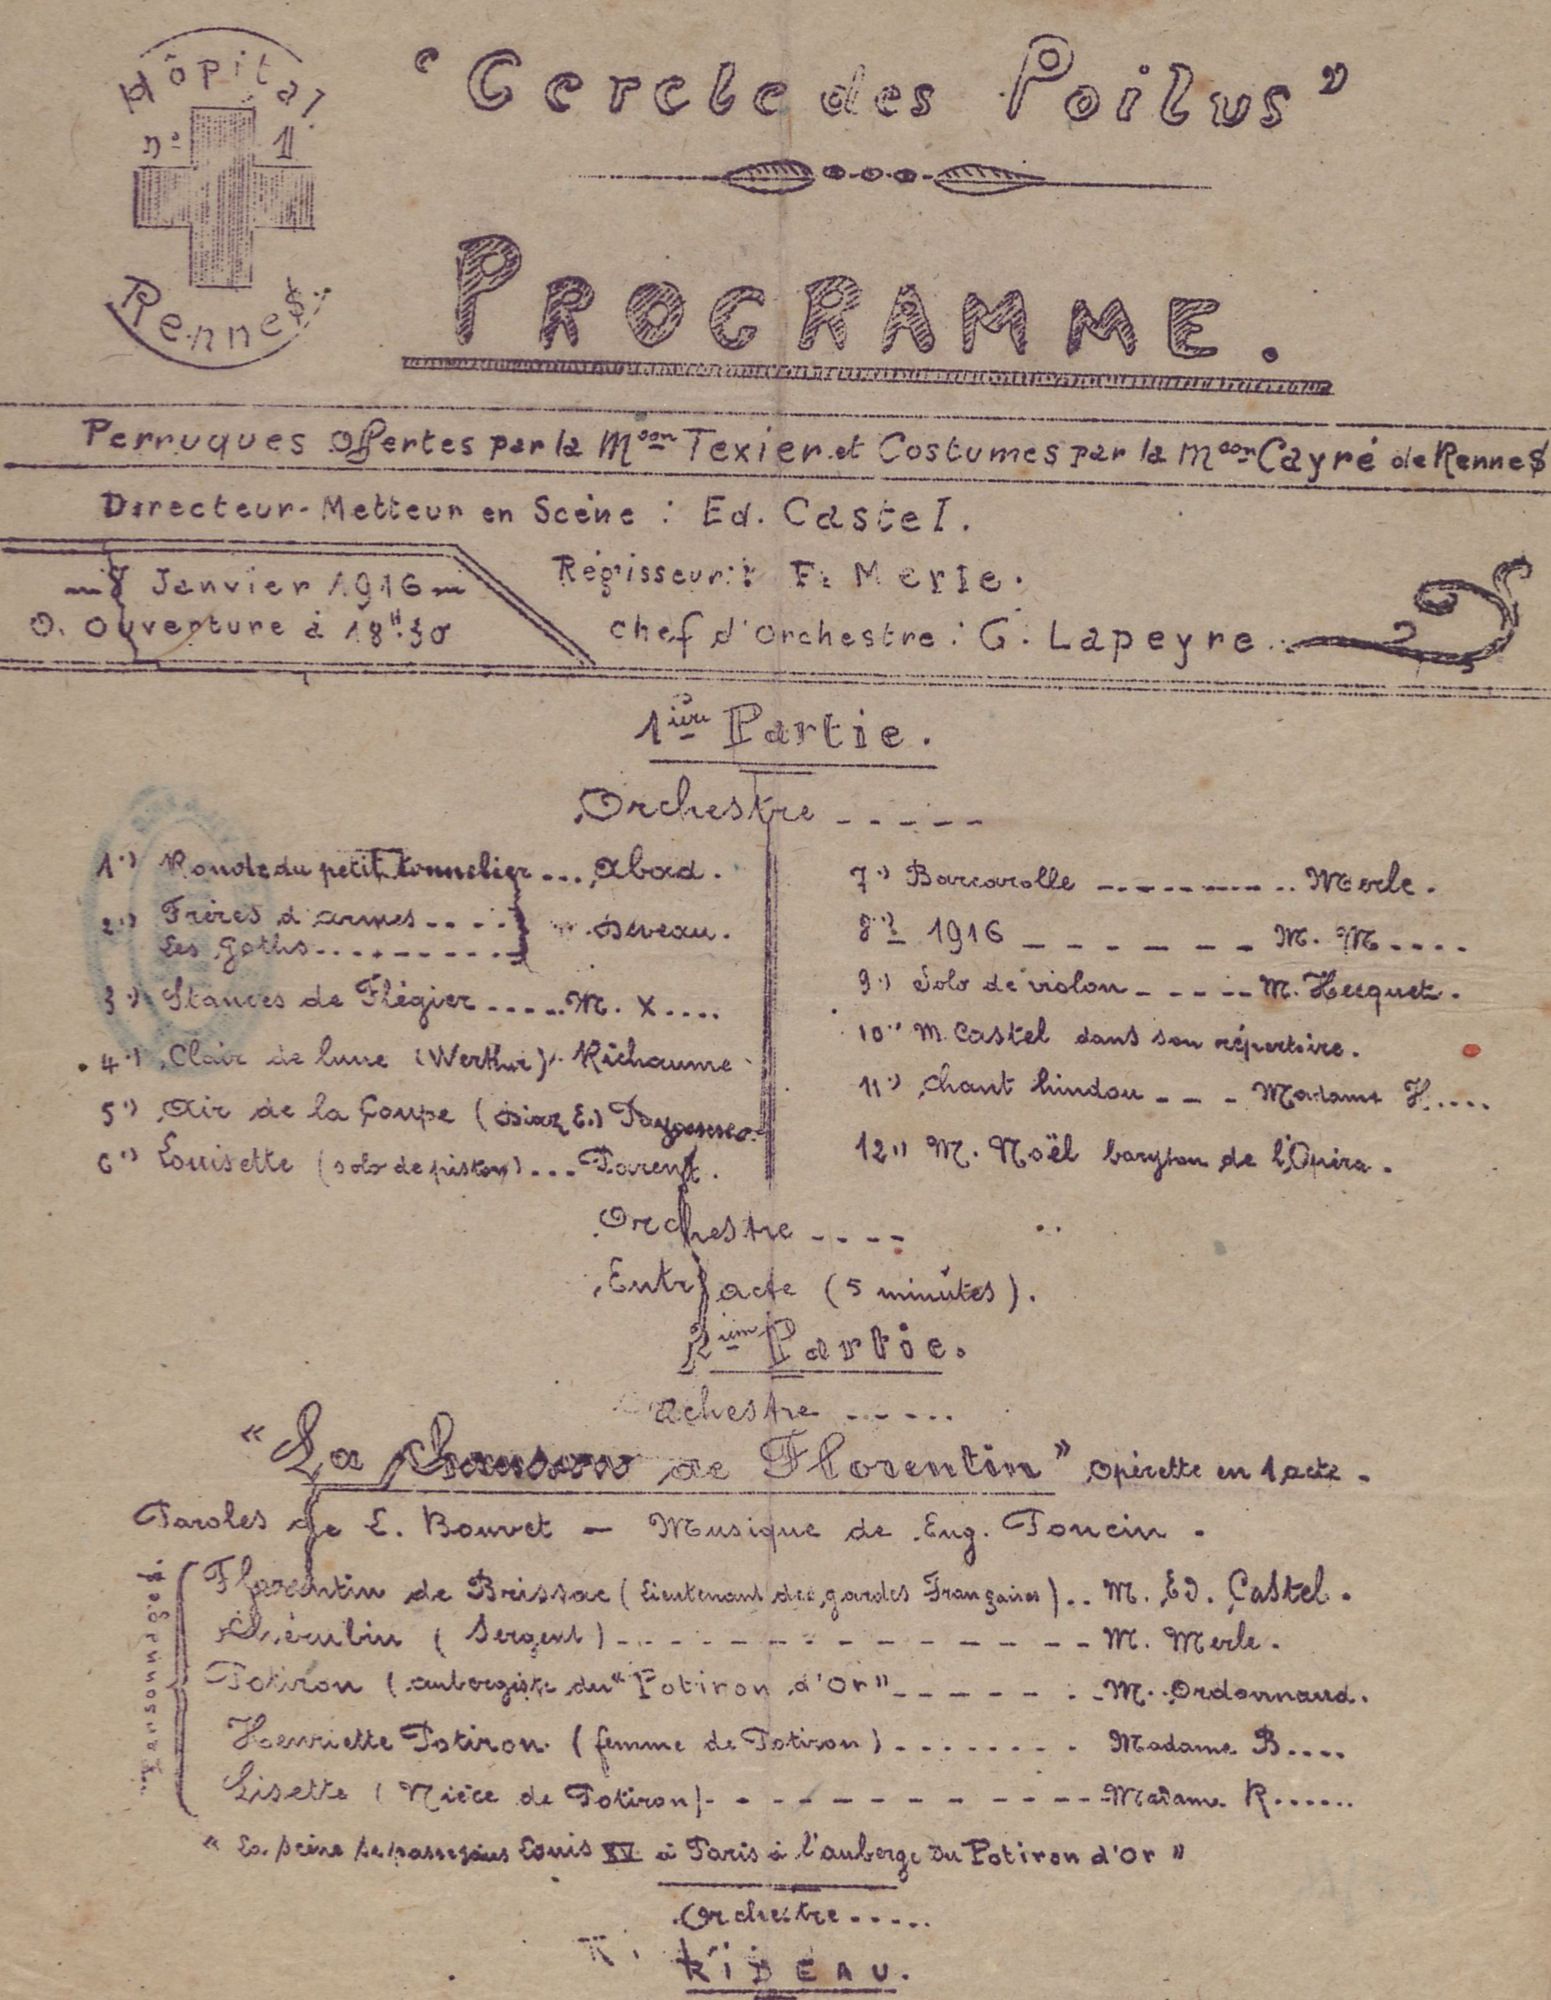 Hôpital
n° 1
Rennes.
"Cercle des Poilus"
PROGRAMME.
Perruques offertes par la Mson Texier et Costumes par la Mson Cayré de Rennes
Directeur-Metteur en Scène : Ed. Castel.
Janvier 1916
Ouverture à 18H.30
Régisseur : F. Merle.
Chef d'Orchestre : G. Lapeyre
1ière Partie.
Orchestre -----
1°) Ronde du petit tonnelier ... Abad.
2°) Frères d'armes ....
Les Goths ......... Deveau.
3°) Stances de Flégier ..... M. X....
4°) Clair de lune (Werther) Richaume
5°) Air de la Coupe (Diaz E.)
6°) Louisette (solo de piston) ... Parent.
7°) Barcarolle --------- Merle.
8°) 1916 ------ M. M....
9°) Solo de violon ----- M. Hecquet.
10°) M. Castel dans son répertoire.
11°) Chant hindou --- Madame H....
12°) M. Noël baryton de l'Opéra.
Orchestre ----
Entr'acte (5 minutes).
2ième Partie.
Orchestre ------
"La Chanson de Florentin" opérette en 1 acte.
Paroles de E. Bouvet - Musique de Eug. Poncin.
Personnages.
Florentin de Brissac (Lieutenant des gardes Françaises) .. M. Ed. Castel.
Chérubin (Sergent) ------------ M. Merle.
Potiron (aubergiste du "Potiron d'Or" ------- M. Ordonnaud.
Henriette Potiron (femme de Potiron) -------- Madame B....
Lisette (Nièce de Potiron) ------------ Madame R......
"La scène se passe sous Louis XV à Paris à l'auberge du Potiron d'Or"
Orchestre .....
RIDEAU.